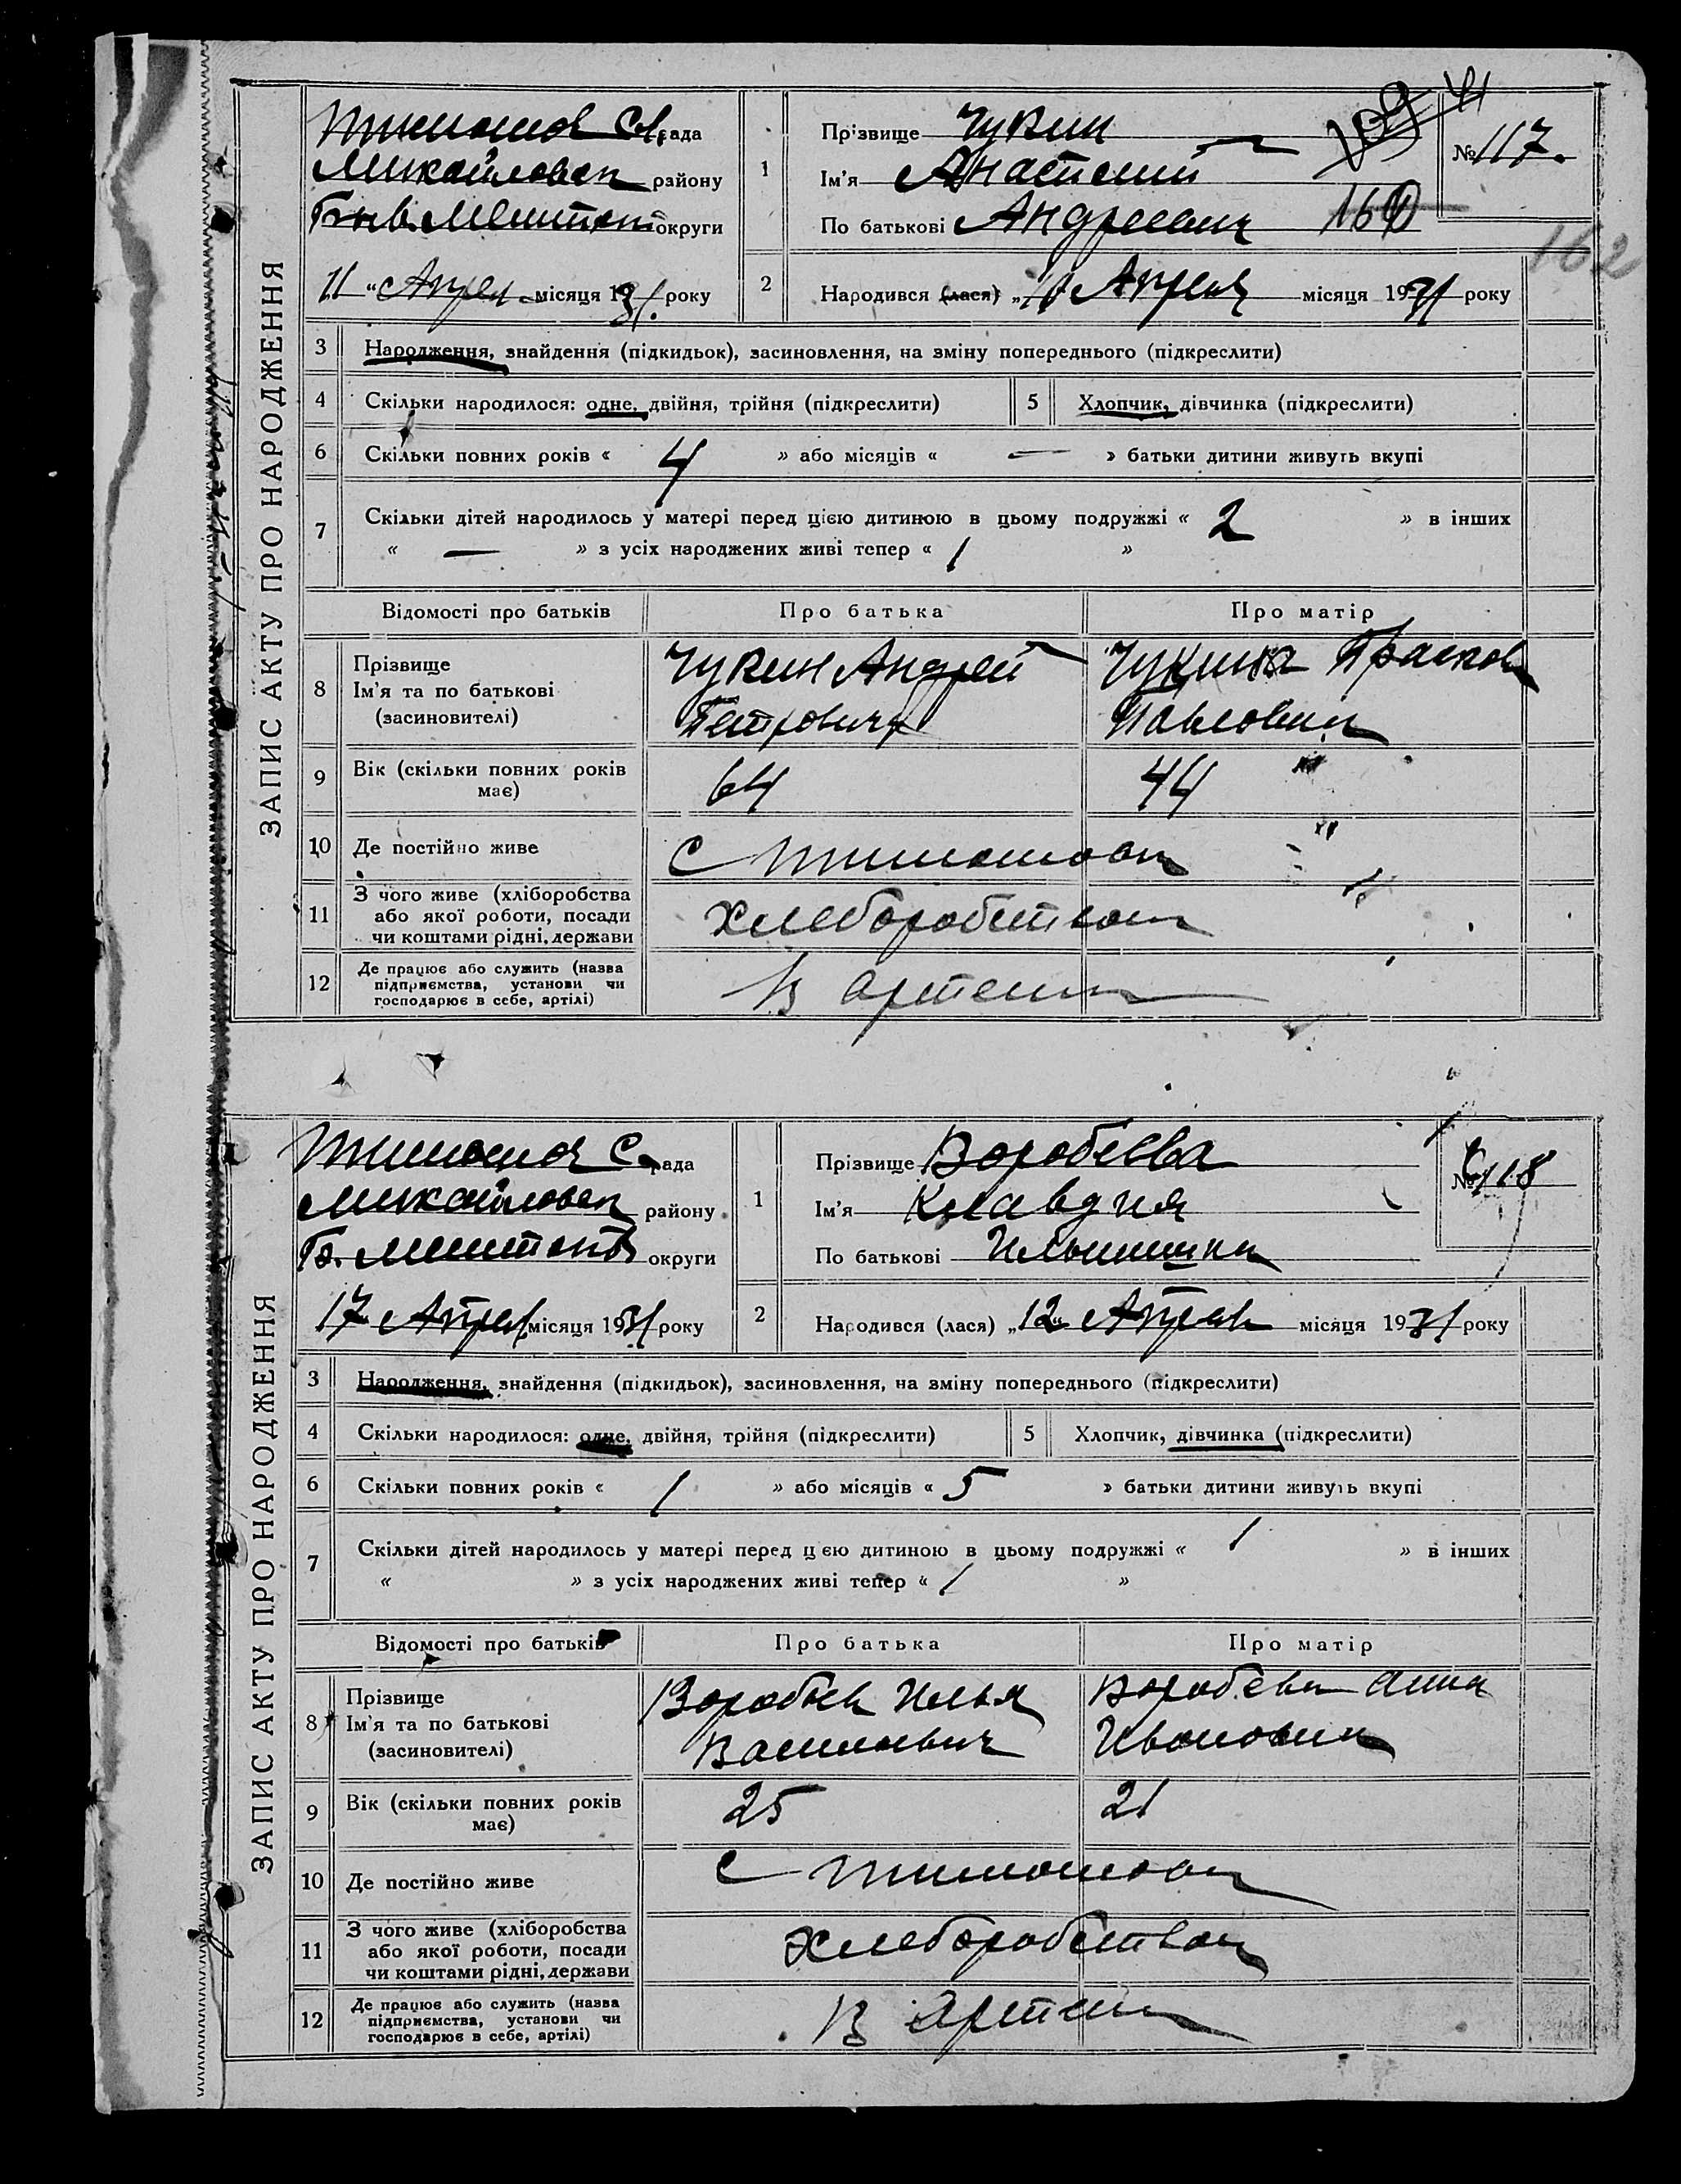 ЗАПИС АКТУ ПРО НАРОДЖЕННЯ
Тимошов С. рада
Михайловск району
Быв. Мелитоп округи
11 „ Апреля місяця 1931 року
1
Прізвище Чукин
Ім'я Анастасий
По батькові Андреевич
№ 117.
109
161
162
2
Народився (лася) „10 Апреля місяця 1931 року
3 Народження, знайдення (підкидьок), засиновлення, на зміну попереднього (підкреслити)
4 Скільки народилося: одне, двійня, трійня (підкреслити) 5 Хлопчик, дівчинка (підкреслити)
6 Скільки повних років « 4 » або місяців « — » батьки дитини живуть вкупі
7 Скільки дітей народилось у матері перед цією дитиною в цьому подружжі « 2 » в інших
« — » з усіх народжених живі тепер « 1 »
Відомості про батьків Про батька Про матір
8 Прізвище
Ім'я та по батькові
(засиновителі)
Чукин Андрей
Петрович
Чукина Прасков
Павловна
9 Вік (скільки повних років
має)
64 44
10 Де постійно живе С Тимошовка
11 З чого живе (хліборобства
або якої роботи, посади
чи коштами рідні, держави
Хлеборобством
12 Де працює або служить (назва
підприємства, установи чи
господарює в себе, артілі)
В артели
ЗАПИС АКТУ ПРО НАРОДЖЕННЯ
Тимошов С. рада
Михайловск району
Б. Мелитоп округи
17 Апреля місяця 1931 року
1
Прізвище Воробьева
Ім'я Клавдия
По батькові Ильинишна
№ 118
2
Народився (лася) „12 Апреля місяця 1931 року
3 Народження, знайдення (підкидьок), засиновлення, на зміну попереднього (підкреслити)
4 Скільки народилося: одне, двійня, трійня (підкреслити) 5 Хлопчик, дівчинка (підкреслити)
6 Скільки повних років « 1 » або місяців « 5 » батьки дитини живуть вкупі
7 Скільки дітей народилось у матері перед цією дитиною в цьому подружжі « 1 » в інших
« » з усіх народжених живі тепер « 1 »
Відомості про батьків Про батька Про матір
8 Прізвище
Ім'я та по батькові
(засиновителі)
Воробьев Илья
Васильевич
Воробьева Анна
Ивановна
9 Вік (скільки повних років
має)
25 21
10 Де постійно живе С Тимошовка
11 З чого живе (хліборобства
або якої роботи, посади
чи коштами рідні, держави
Хлеборобством
12 Де працює або служить (назва
підприємства, установи чи
господарює в себе, артілі)
В Артели